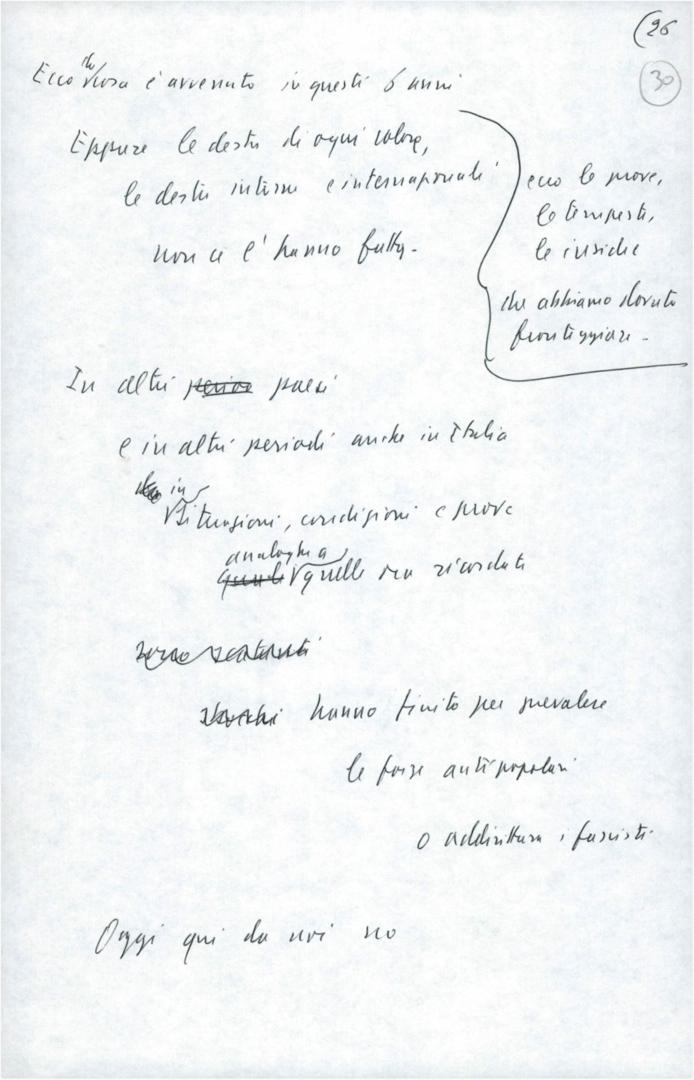 (26
30
Ecco che cosa è avvenuto in questi 6 anni
Eppure le destre di ogni colore,
le destre interne e internazionali
non ce l'hanno fatta.
ecco le prove,
le tempeste,
le insidie
che abbiamo dovuto
fronteggiare.
In altri paesi
e in altri periodi anche in Italia
in
situazioni, condizioni e prove
analoghe a
quelle ora ricordate
hanno finito per prevalere
le forze antipopolari
o addirittura i fascisti.
Oggi qui da noi no